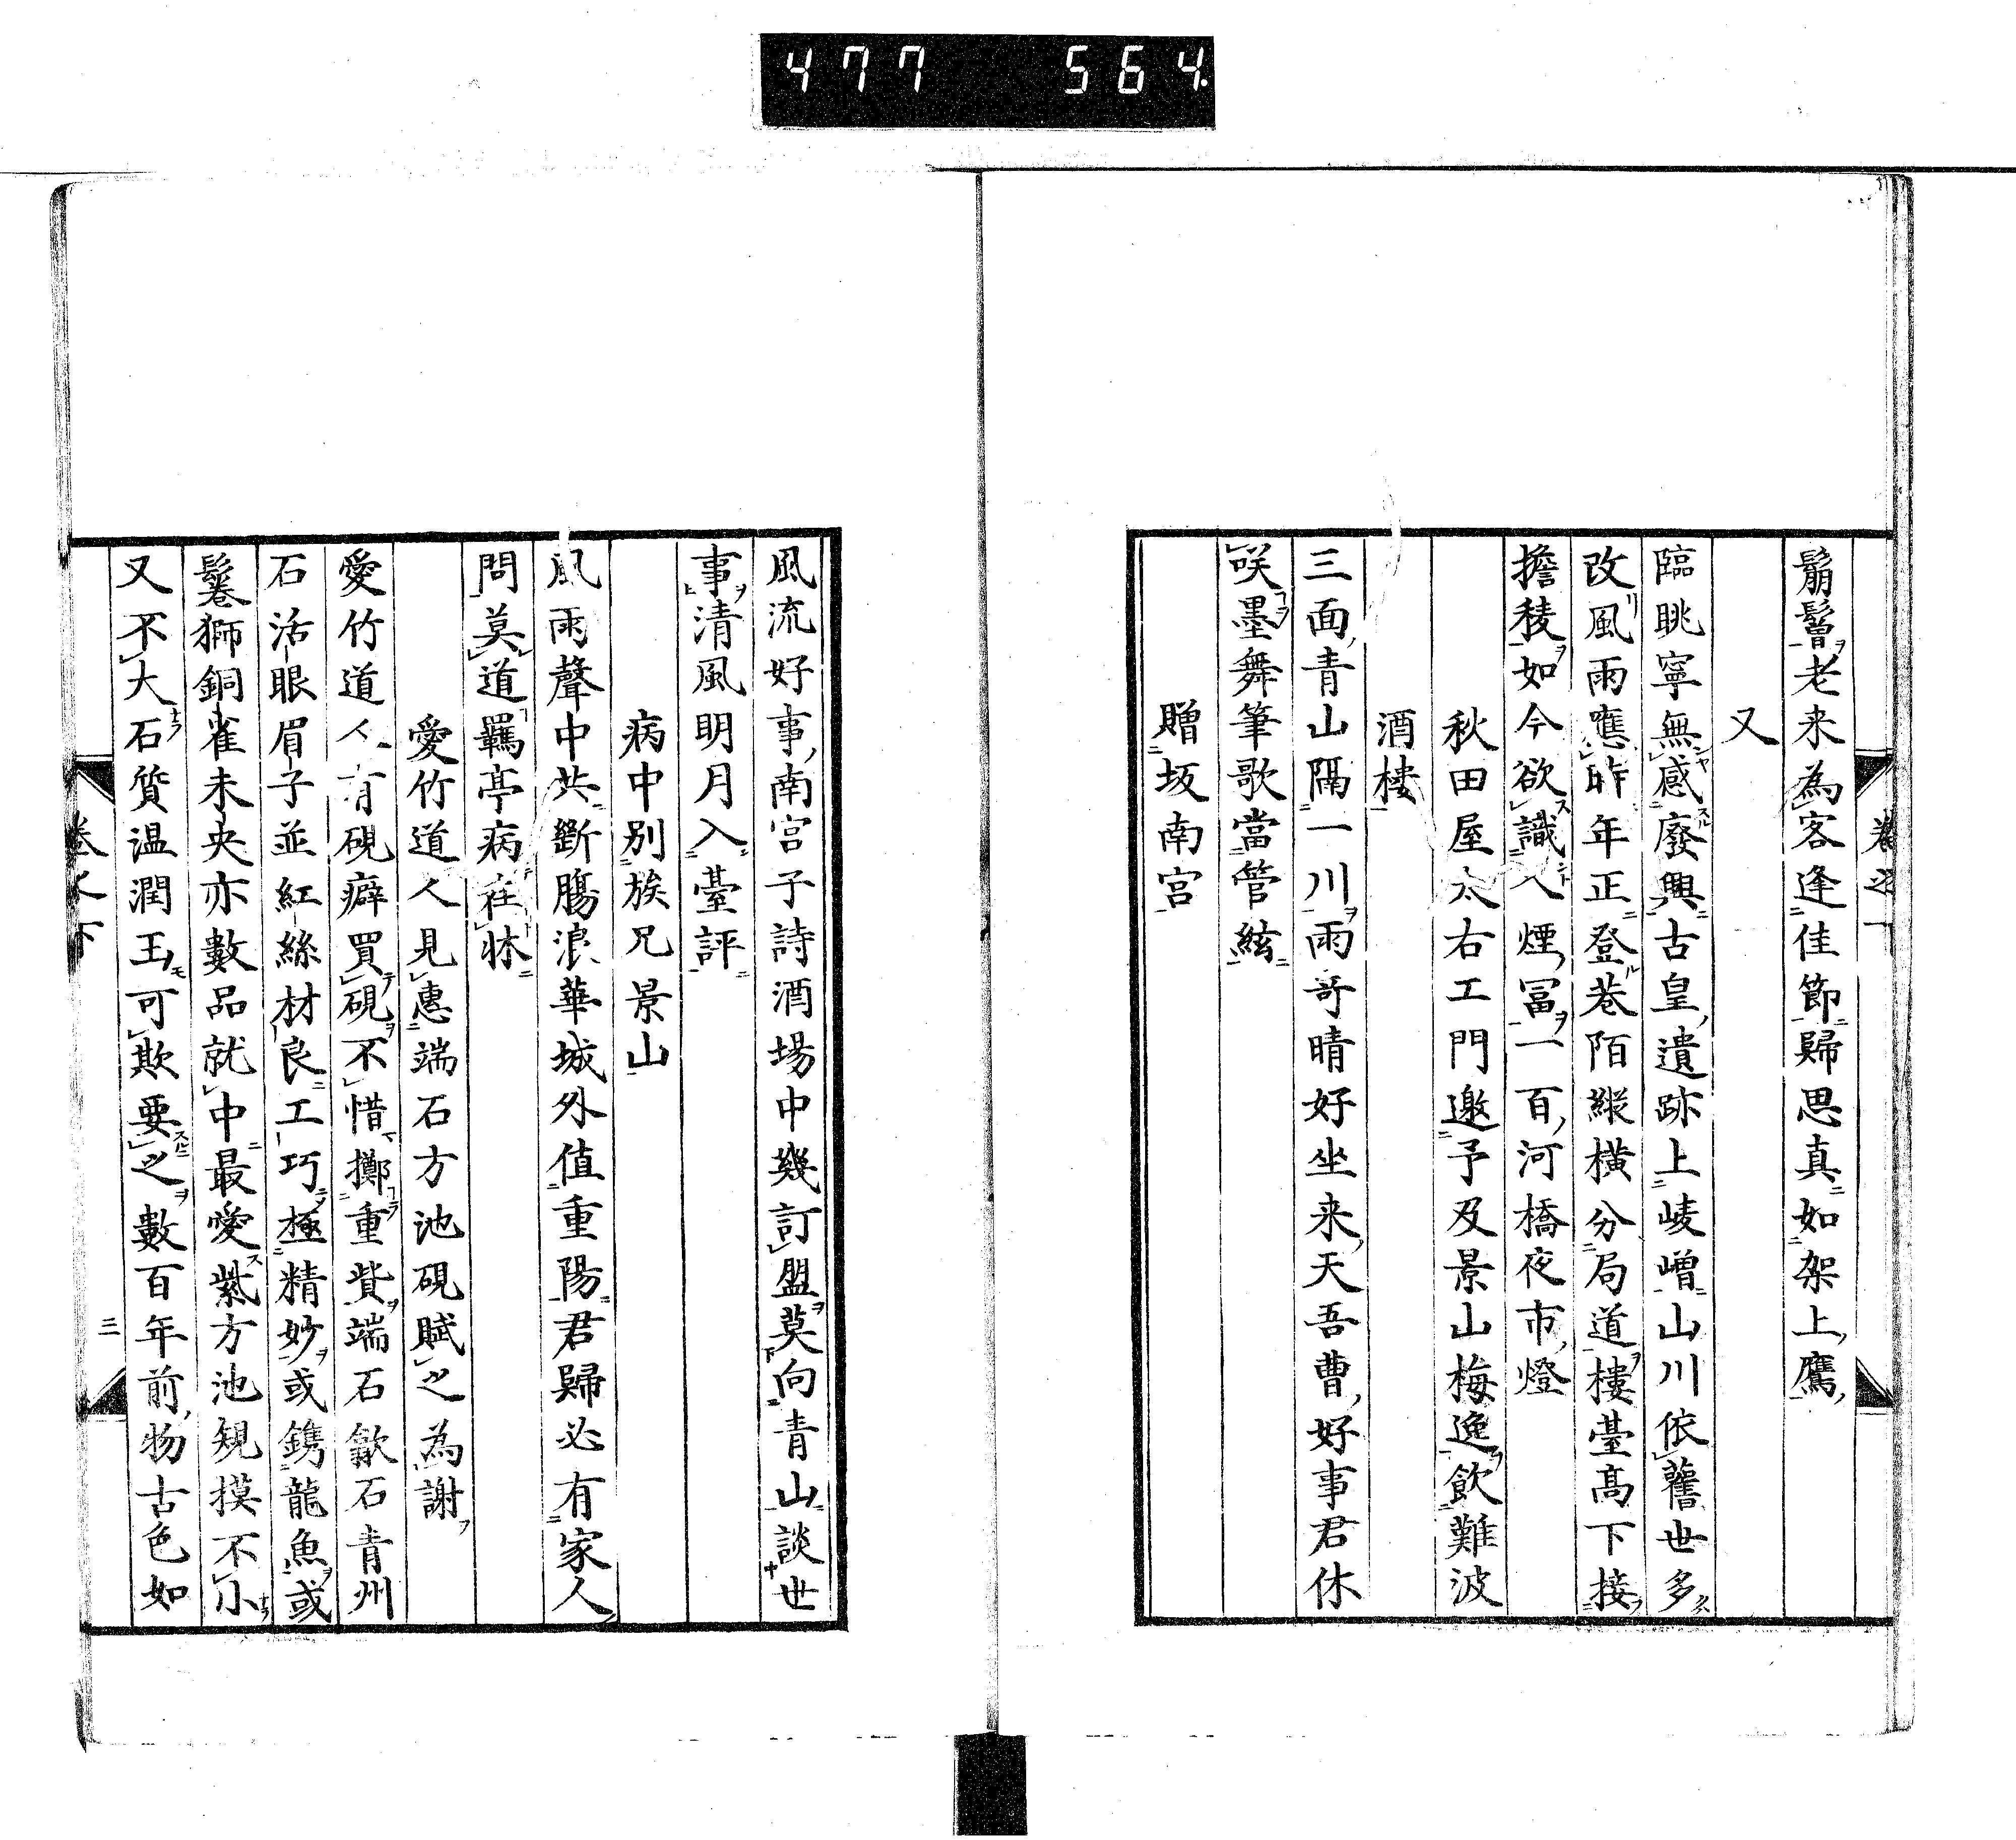 477 564
鬅鬙老来為客逢佳節歸思真如架上鷹
又
臨眺寧無感廢興古皇遺跡上崚嶒山川依舊世多
改風雨應昨年正登巷陌縱橫分局道樓臺高下接
擔稜如今欲識人煙冨一百河橋夜市燈
秋田屋太右工門邀予及景山梅逸飲難波
酒樓
三面青山隔一川雨竒晴好坐来天吾曹好事君休
咲墨舞筆歌當管絃
贈坂南宮
風流好事南宮子詩酒場中幾訂盟莫向青山談世
事清風明月入臺評
病中別族兄景山
風雨聲中共斷膓浪華城外值重陽君歸必有家人
問莫道羈亭病在牀
愛竹道人見惠端石方池硯賦之為謝
愛竹道人有硯癖買硯不惜擲重貲端石歙石青州
石活眼眉子並紅絲材良工巧極精妙或鐫龍魚或
鬈獅銅雀未央亦數品就中最愛紫方池規摸不小
又不大石質温潤玉可欺要之數百年前物古色如
卷之下
三